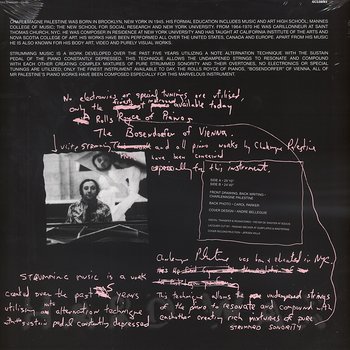 CHARLEMAGNE PALESTINE WAS BORN IN BROOKLYN, NEW YORK IN 1945. HIS FORMAL EDUCATION INCLUDES MUSIC AND ART HIGH SCHOOL, MANNES
COLLEGE OF MUSIC, THE NEW SCHOOL FOR SOCIAL RESEARCH AND NEW YORK UNIVERSITY. FROM 1964-1970 HE WAS CARILLONNEUR AT SAINT
THOMAS CHURCH, NYC. HE WAS COMPOSER IN RESIDENCE AT NEW YORK UNIVERSITY AND HAS TAUGHT AT CALIFORNIA INSTITUTE OF THE ARTS AND
NOVA SCOTIA COLLEGE OF ART. HIS WORKS HAVE BEEN PERFORMED ALL OVER THE UNITED STATES, CANADA AND EUROPE. APART FROM HIS MUSIC
HE IS ALSO KNOWN FOR HIS BODY ART, VIDEO AND PURELY VISUAL WORKS.
STRUMMING MUSIC IS A WORK DEVELOPED OVER THE PAST FIVE YEARS UTILIZING A NOTE ALTERNATION TECHNIQUE WITH THE SUSTAIN
PEDAL OF THE PIANO CONSTANTLY DEPRESSED. THIS TECHNIQUE ALLOWS THE UNDAMPENED STRINGS TO RESONATE AND COMPOUND
WITH EACH OTHER CREATING COMPLEX MIXTURES OF PURE STRUMMED SONORITY AND THEIR OVERTONES. NO ELECTRONICS OR SPECIAL
TUNINGS ARE UTILIZED, ONLY THE FINEST INSTRUMENT AVAILABLE TO DAY, THE ROLLS ROYCE OF PIANOS, "BOSENDORFER" OF VIENNA. ALL OF
MR PALESTINE'S PIANO WORKS HAVE BEEN COMPOSED ESPECIALLY FOR THIS MARVELOUS INSTRUMENT.
No electronics or special tunings are utilised,
only the finest available today
a Rolls Royce of Pianos
The Bosendorfer of Vienna.
and all piano works by Charlemagne Palestine
have been conceived
especially for this instrument.
SIDE A - 25'10"
SIDE B - 26'40"
FRONT DRAWING, BACK WRITING -
CHARLEMAGNE PALESTINE
BACK PHOTO - CAROL PARKER
COVER DESIGN - ANDRE BELLEGUIE
Charlemagne Palestine was born & educated in NYC
STRUMMING music is a work
created over the past years
utilising an alternation technique
with sustain pedal constantly depressed
This technique allows the undamped strings
of the piano to resonate and compound with
eachother creating rich mixtures of pure
STRUMMED SONORITY